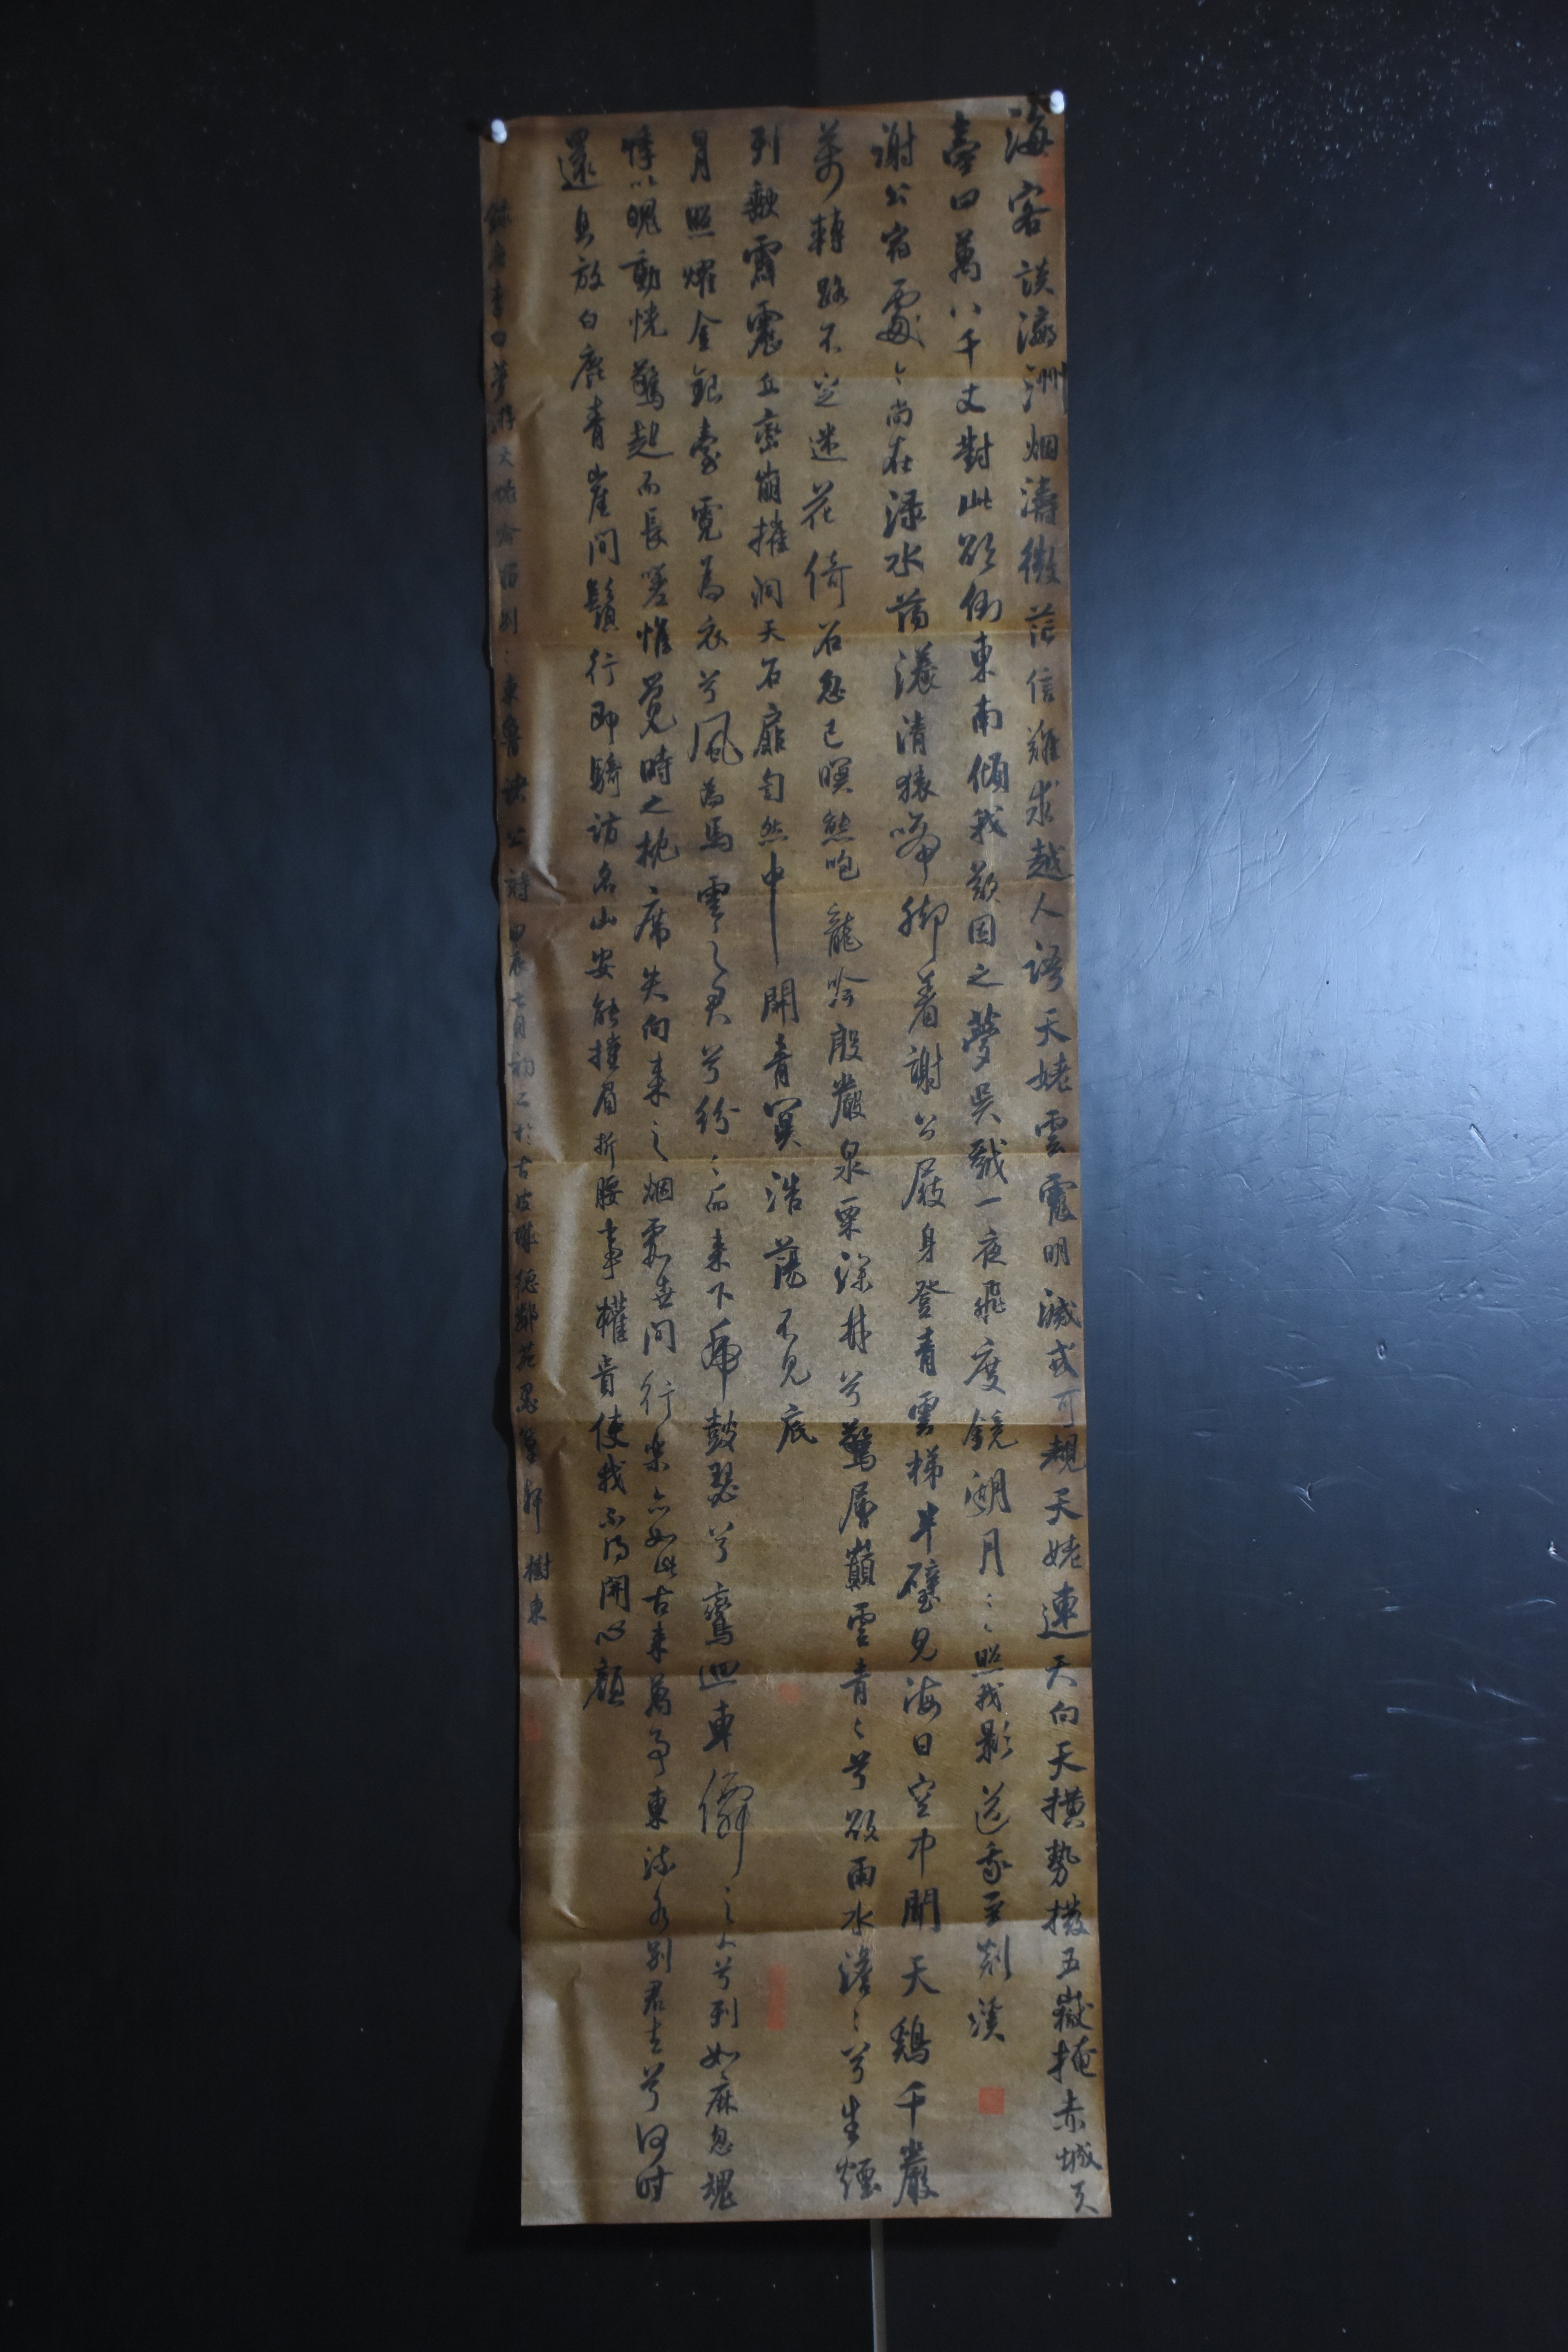 海客談瀛洲烟濤微茫信難求越人語天姥雲霓明滅或可覩天姥連天向天橫勢拔五嶽掩赤城天
臺四萬八千丈對此欲倒東南傾我欲因之夢吳越一夜飛度鏡湖月〻照我影送我至剡溪
謝公宿處〻尚在淥水蕩漾清猿啼脚著謝公屐身登青雲梯半壁見海日空中聞天鷄千巖
萬轉路不定迷花倚石忽已暝熊咆龍吟殷巖泉栗深林兮驚層巔雲青〻兮欲雨水澹〻兮生煙
列缺霹靂丘巒崩摧洞天石扉訇然中開青冥浩蕩不見底
月照耀金銀臺霓為衣兮風為馬雲之君兮紛〻而來下虎鼓瑟兮鸞迴車僊之人兮列如麻忽魂
悸以魄動恍驚起而長嗟惟覺時之枕席失向來之烟霞世間行樂亦如此古來萬事東流水別君去兮何時
還且放白鹿青崖間須行即騎訪名山安能摧眉折腰事權貴使我不得開心顏
錄唐李白夢游天姥吟留別〻東魯諸公詩甲辰七月初二於古皮陳德鄰苑墨軒樹東